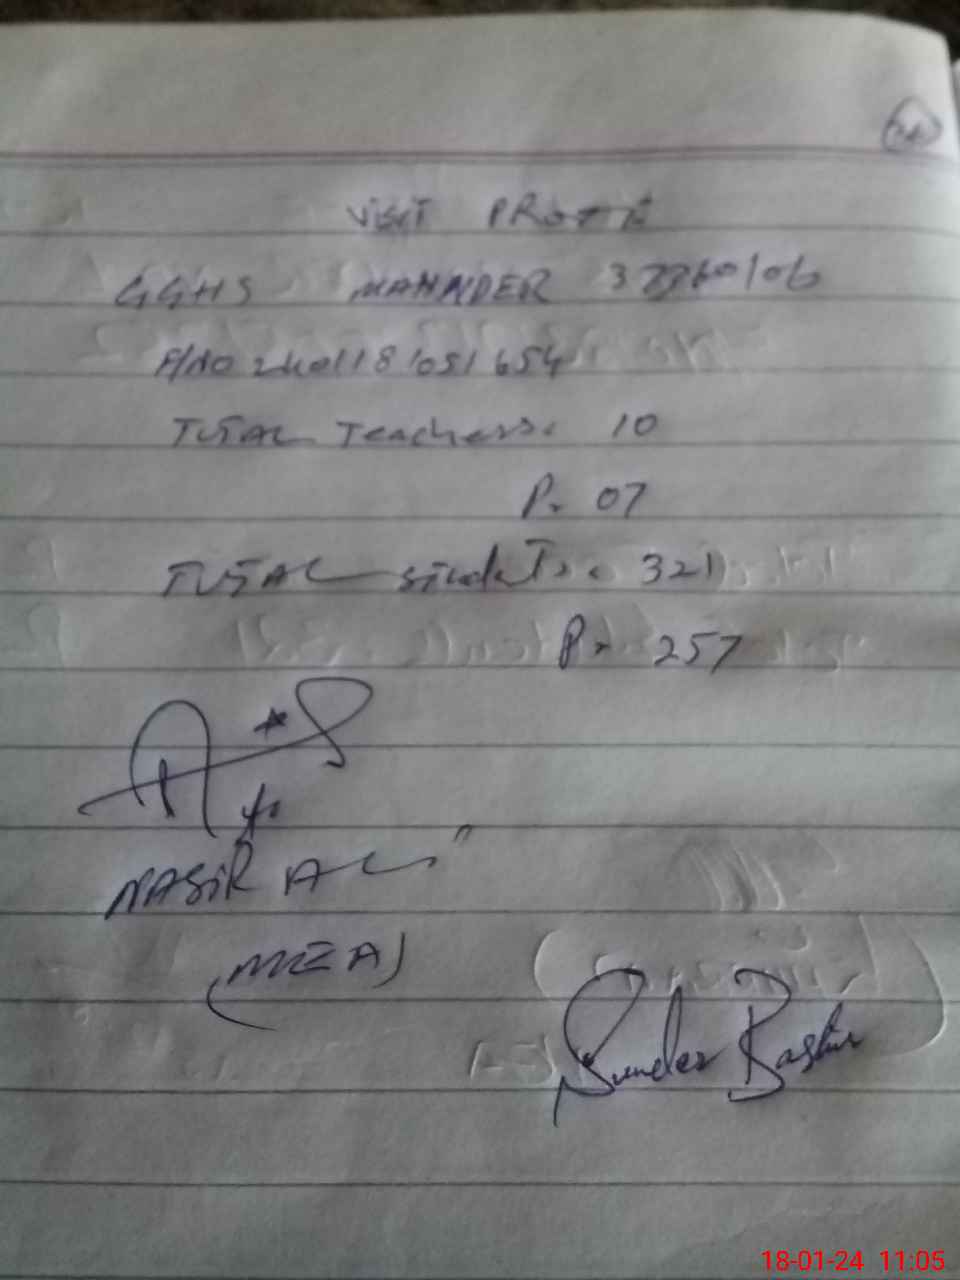 VISIT PROFE
GGHS MANANDER
A/NO 240118 1051654
TOTAL Teachers. 10
P. 07
TOTAL Students. 321
P. 257
NASIR ALI
(MEA)
Sunder Bashir
18-01-24 11:05